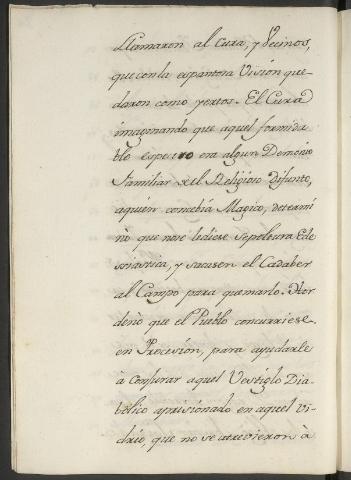 Llamaron al Cura, y Vecinos,
que con la espantosa Visión que-
daron como yertos. El Cura
imaginando que aquel formida
ble espectro era algun Demonio
familiar del Religioso difunto,
aquien concebia Magico, determi
nò que nose lediese sepoltura Ecle
siastica, y sacasen el Cadaber
al Campo para quemarlo. Hor
denò que el Pueblo concurriese
en Procesion, para ayudarle
à conjurar aquel Vestiglo Dia-
bolico aprisionado en aquel vi-
drio, que no se atrevieron à